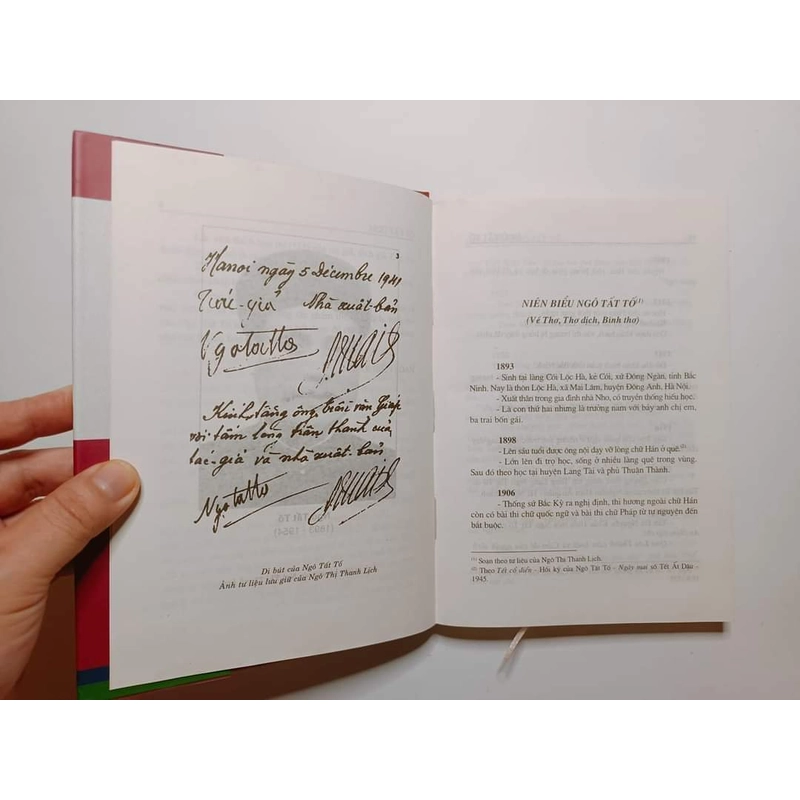 3
Hanoi ngày 5 Décembre 1941
Tác-giả Nhà xuất-bản
Ngôtatto
Kính tặng ông Trần văn Giáp
với tấm lòng thân thanh của
tác-giả và nhà xuất bản
Ngotatto
TẤT TỐ
(1893 - 1954)
Di bút của Ngô Tất Tố
Ảnh tư liệu lưu giữ của Ngô Thị Thanh Lịch
NIÊN BIỂU NGÔ TẤT TỐ(1)
(Về Thơ, Thơ dịch, Bình thơ)
1893
- Sinh tại làng Cói Lộc Hà, kẻ Cói, xứ Đông Ngàn, tỉnh Bắc
Ninh. Nay là thôn Lộc Hà, xã Mai Lâm, huyện Đông Anh, Hà Nội.
- Xuất thân trong gia đình nhà Nho, có truyền thống hiếu học.
- Là con thứ hai nhưng là trưởng nam với bảy anh chị em,
ba trai bốn gái.
1898
- Lên sáu tuổi được ông nội dạy vỡ lòng chữ Hán ở quê.(2)
- Lớn lên đi trọ học, sống ở nhiều làng quê trong vùng.
Sau đó theo học tại huyện Lang Tài và phủ Thuận Thành.
1906
- Thống sứ Bắc Kỳ ra nghị định, thi hương ngoài chữ Hán
còn có bài thi chữ quốc ngữ và bài thi chữ Pháp từ tự nguyện đến
bắt buộc.
(1) Soạn theo tư liệu của Ngô Thị Thanh Lịch.
(2) Theo Tết cổ điển - Hồi ký của Ngô Tất Tố - Ngày mai số Tết Ất Dậu
- 1945.